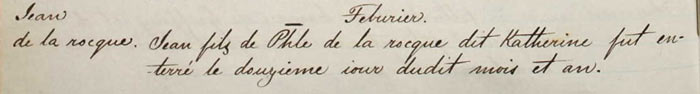 Jean Feburier.
de la rocque. Jean filz de Phle de la rocque dit Katherine fut en-
terré le douzieme iour dudit mois et an.